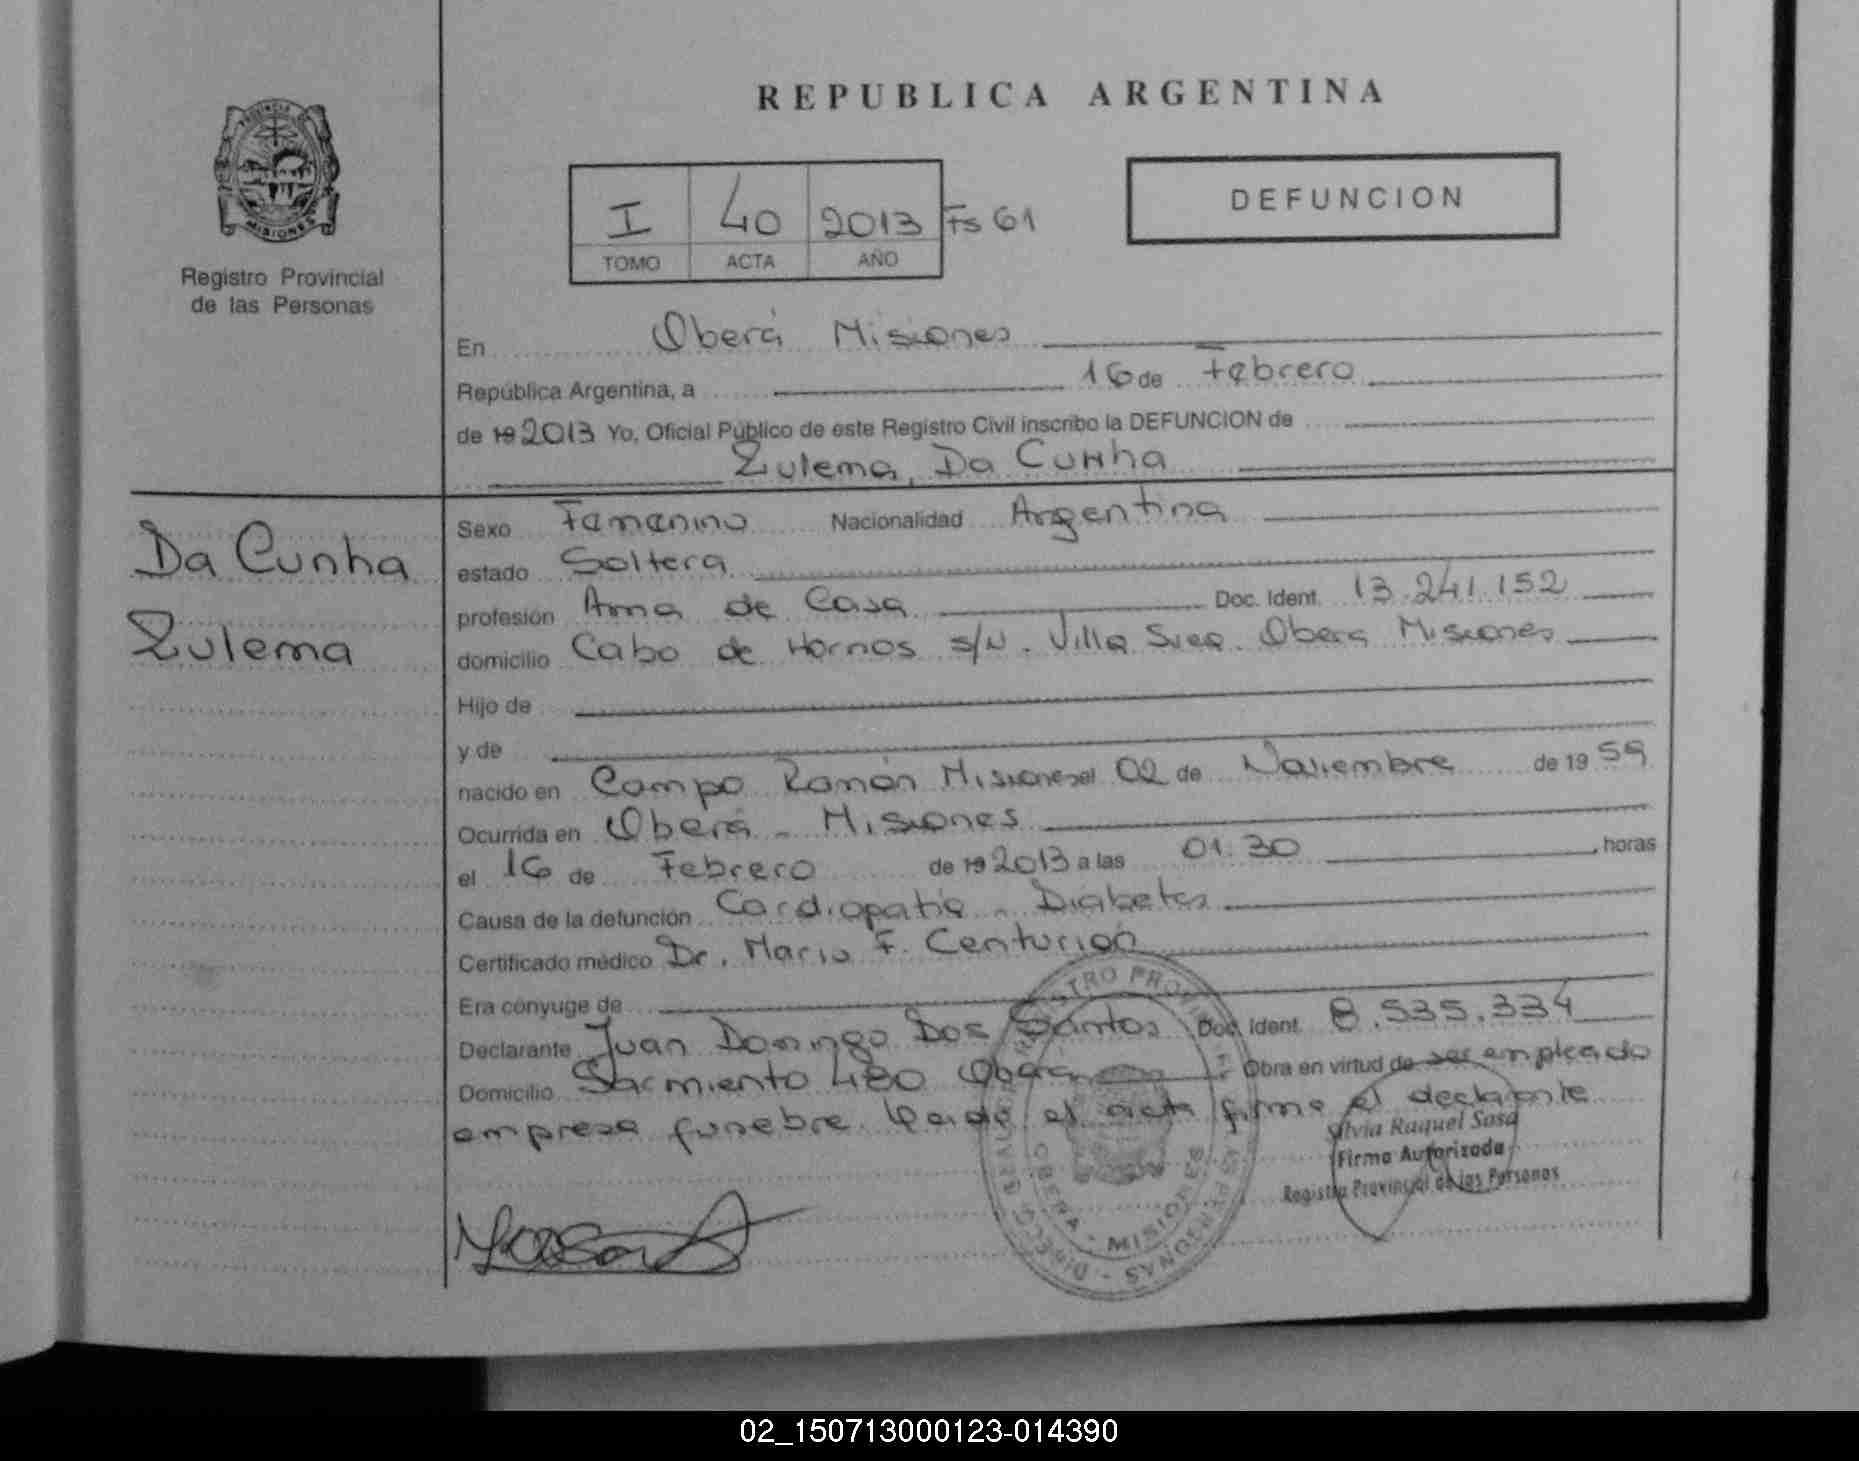 REPUBLICA ARGENTINA
PROVINCIA
MISIONES
Registro Provincial
de las Personas
I 40 2013 Fs 61
TOMO ACTA AÑO
DEFUNCION
En Oberá Misiones
República Argentina, a 16 de Febrero
de 19 2013 Yo, Oficial Público de este Registro Civil inscribo la DEFUNCION de
Zulema, Da Cunha
Da Cunha
Zulema
Sexo Femenino Nacionalidad Argentina
estado Soltera
profesión Ama de Casa Doc. Ident. 13.241.152
domicilio Cabo de Hornos s/N. Villa Svea. Obera Misiones
Hijo de
y de
nacido en Campo Ramón Misiones el 02 de Noviembre de 19 59
Ocurrida en Oberá - Misiones
el 16 de Febrero de 19 2013 a las 01.30 horas
Causa de la defunción Cardiopatía - Diabetes
Certificado médico Dr. Mario F. Centurión
Era cónyuge de
Declarante Juan Domingo Dos Santos Doc. Ident. 8.535.334
Domicilio Sarmiento 480 Obera Obra en virtud de ser empleado
empresa funebre leida el acta firma el declarante
Silvia Raquel Sosa
Firma Autorizada
Registro Provincial de las Personas
OBERA - MISIONES
02_150713000123-014390